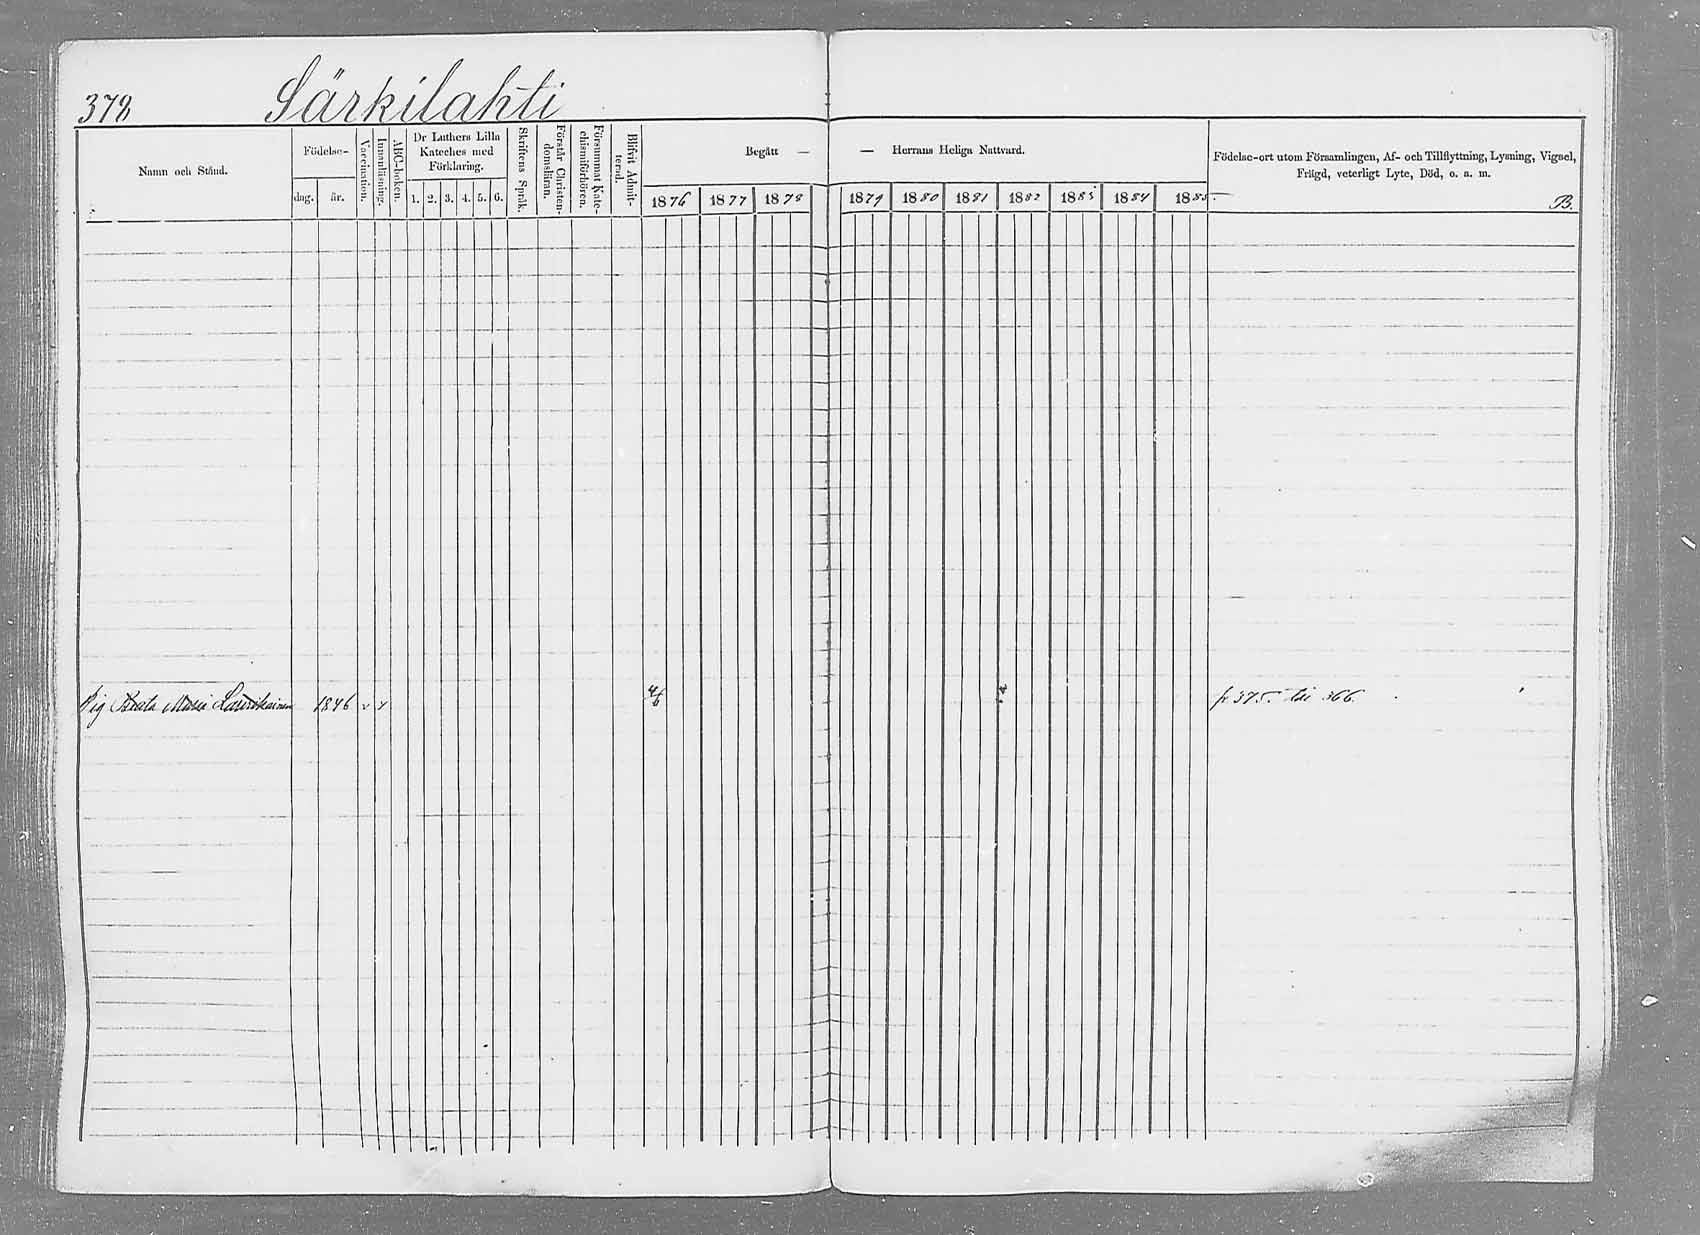 378 Särkilahti
Namn och Stånd.
Födelse-
dag. år.
Vaccination.
Innanläsning.
ABC-boken.
Dr Luthers Lilla
Kateches med
Förklaring.
1. 2. 3. 4. 5. 6.
Skriftens Språk.
Förstår Christen-
domsläran.
Försummat Kate-
chismiförhören.
Blifvit Admit-
terad.
Begått —
1876 1877 1878
— Herrans Heliga Nattvard.
1879 1880 1881 1882 1883 1884 1885
Födelse-ort utom Församlingen, Af- och Tillflyttning, Lysning, Vigsel,
Frägd, veterligt Lyte, Död, o. a. m.
B.
Pig Beata Maria 1846 v v 4/6 fr 375. till 366.